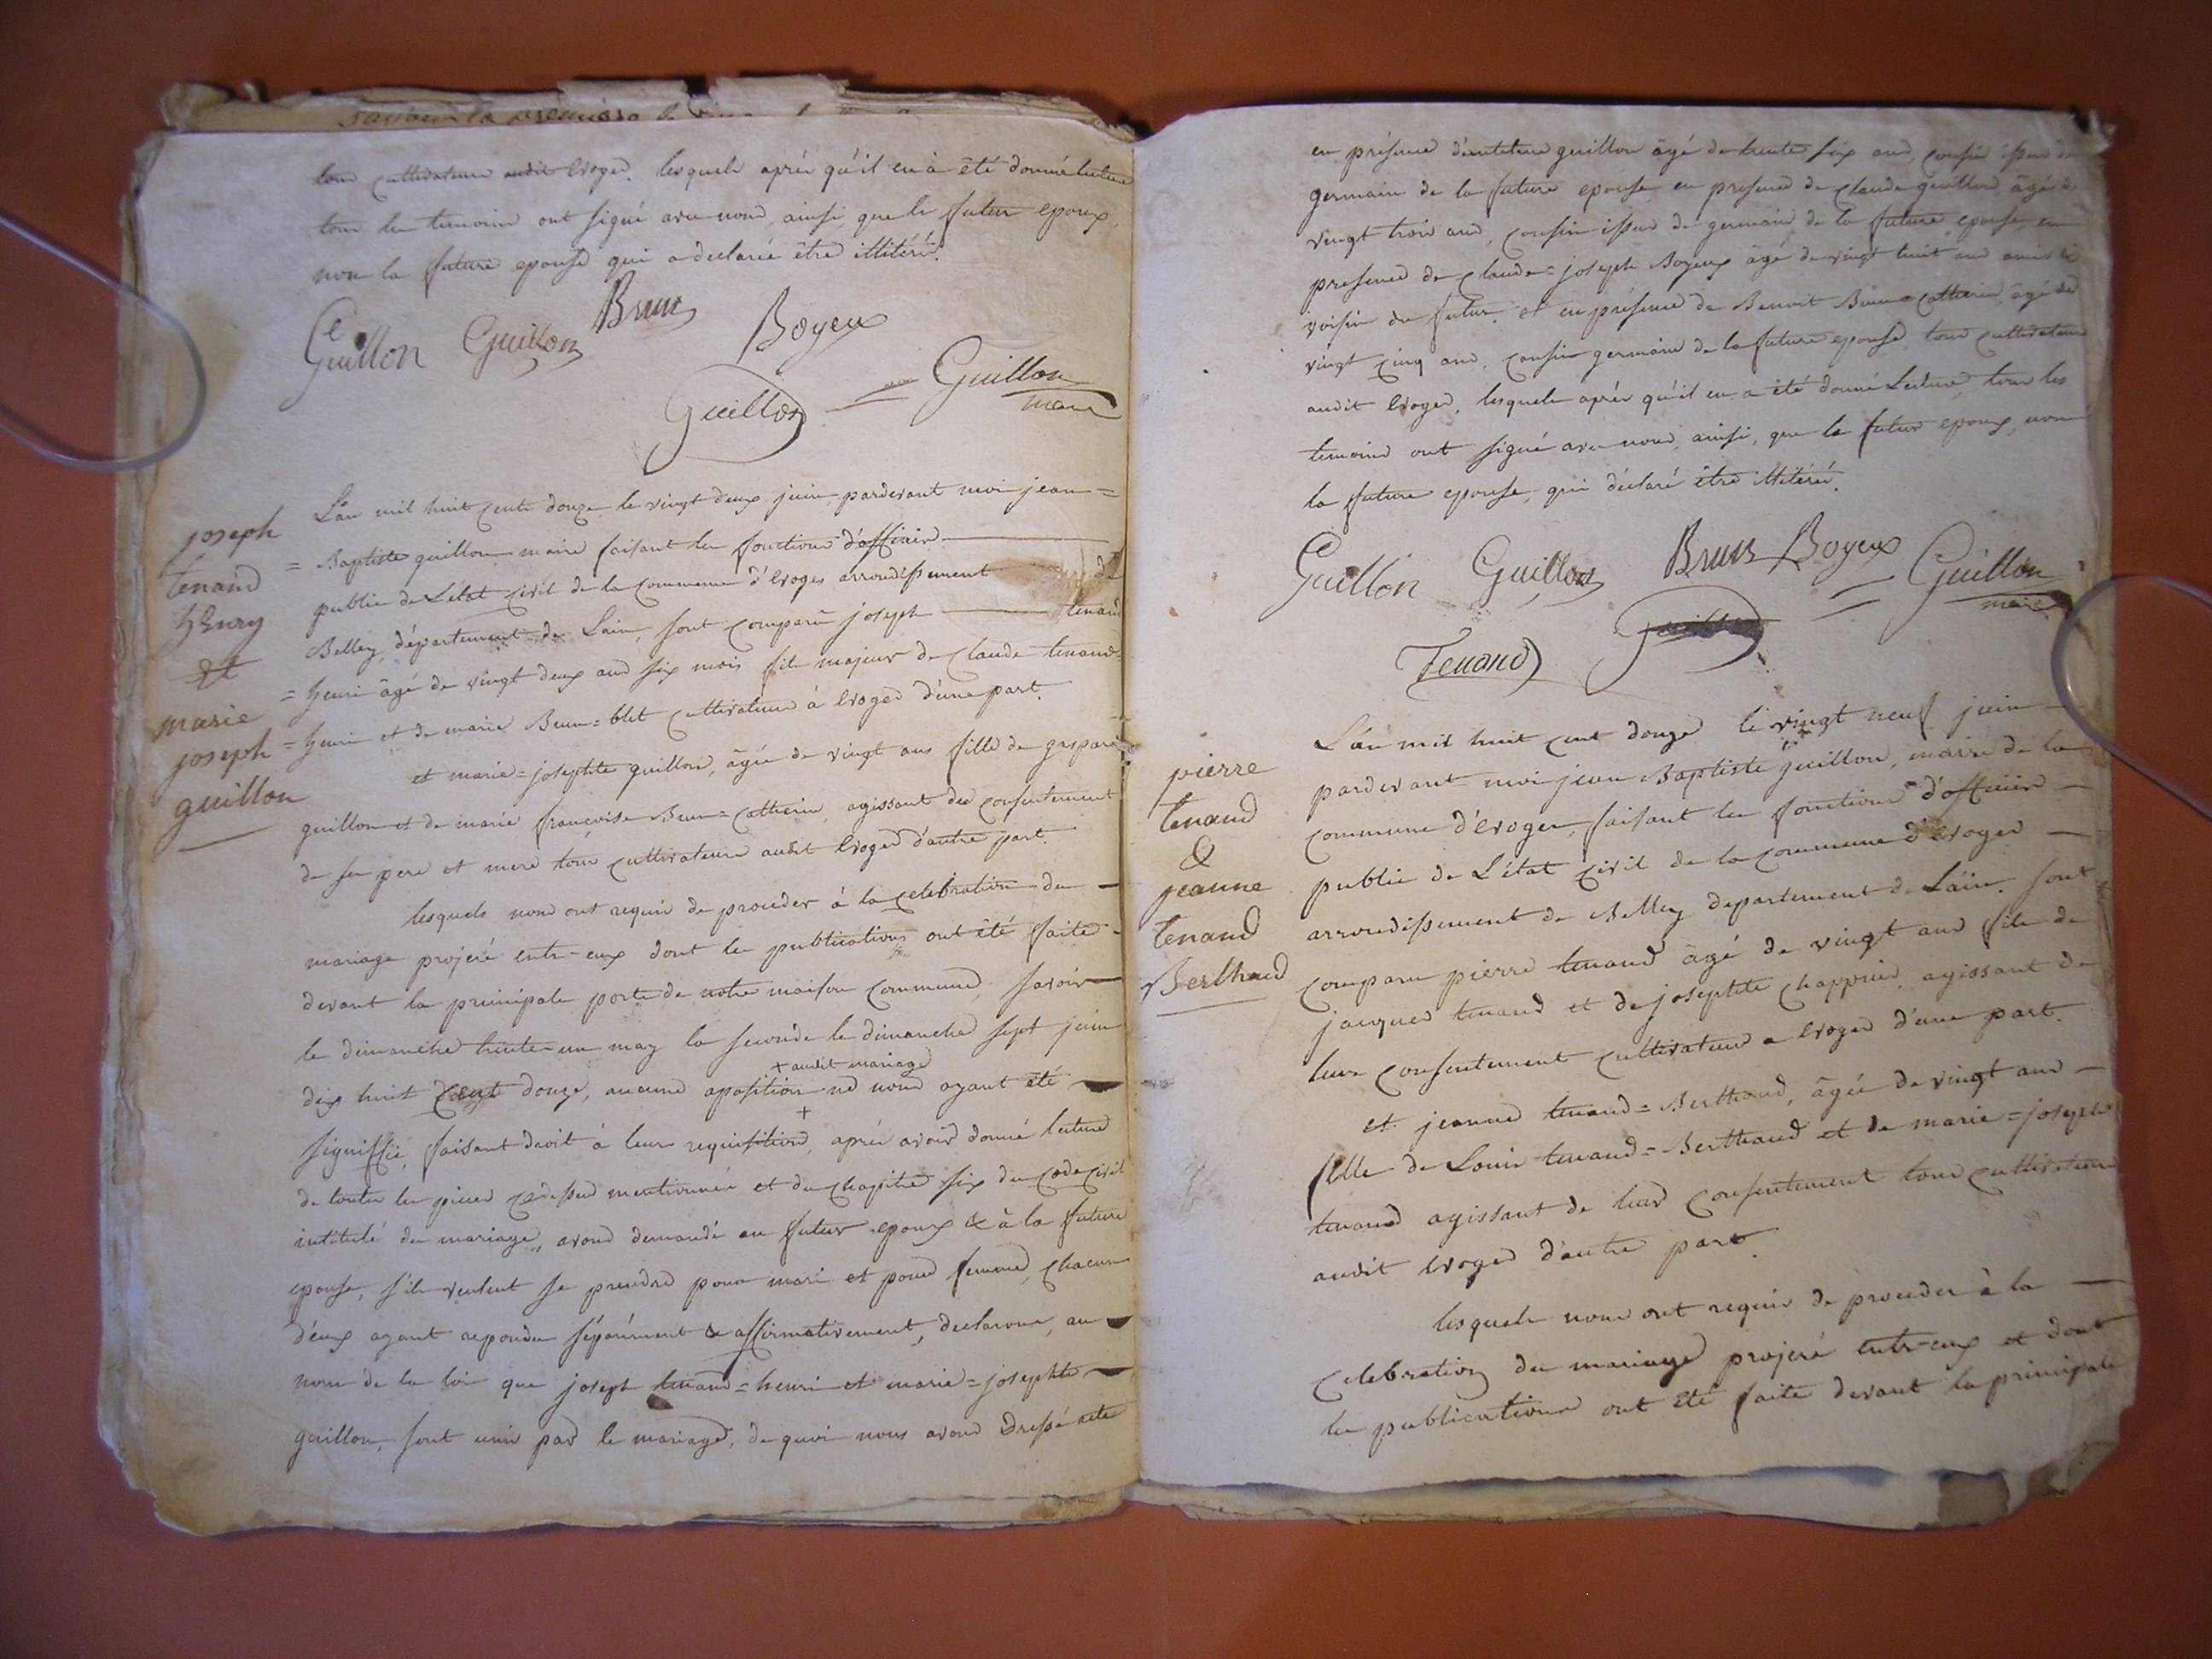 tous cultivateurs audit Evoges. lesquels après qu'il en à été donné lecture
tous les temoins ont signé avec nous, ainsi, que le futur epoux,
non la future epouse qui a declarée être illitéré.
Guillon Guillon Brun Boyeux
Guillon Guillon
maire
joseph
tenand
henry
et
marie
joseph
guillon
L'an mil huit cents douze le vingt deux juin, pardevant moi jean=
= Baptiste guillon maire faisant les fonctions d'officier
public de L'état civil de la commune d'Evoges arrondissement de
Belley, département de Lain, sont comparu joseph tenand
= henri âgé de vingt deux ans six mois fils majeur de Claude tenand=
= henri et de marie Brun=blet cultivateurs à Evoges d'une part.
et marie=josephte guillon, âgée de vingt ans fille de gaspard
guillon et de marie françoise Brun=Catherin, agissant du consentement
de ses pere et mere tous cultivateurs audit Evoges d'autre part.
lesquels nous ont requis de proceder à la celebration du
mariage projeté entr-eux dont les publications ont été faite
devant la principale porte de notre maison commune, savoir
le dimanche trente-un may la seconde le dimanche sept juin
+ audit mariage
dix huit cent douze, aucune aposition ne nous ayant été
signiffié, faisant droit à leurs requisition, après avoir donné lecture
de toutes les pieces cidessus mentionnées et du chapitre six du code civil
intitulé du mariage, avons demandé au futur epoux & à la future
epouse, s'ils veulent se prendre pour mari et pour femme, chacun
d'eux ayant repondu séparément & affirmativement, declarons, au
nom de la loi que joseph tenand=henri et marie=josephte
guillon, sont unis par le mariage, de quoi nous avons dressé acte
en présence d'antelme guillon âgé de trente six ans, cousin issus de
germain de la future epouse, en presence de Claude guillon âgé de
vingt trois ans, cousin issus de germain de la future epouse, en
presence de Claude=joseph Boyeux âgé de vingt huit ans amis &
voisin du futur. et en présence de Benoit Brun=Catherin âgé de
vingt cinq ans, cousin germain de la future epouse tous cultivateurs
audit Evoges, lesquels après qu'il en a été donné Lecture, tous les
temoins ont signé avec nous, ainsi, que le futur epoux, non
la future epouse, qui déclaré être illitéré.
Guillon Guillon Brun Boyeux Guillon
maire
Tenand
pierre
tenand
&
jeanne
tenand
Berthaud
L'an mil huit cent douze le vingt neuf juin
pardevant moi jean Baptiste guillon, maire de la
commune d'Evoges, faisant les fonctions d'officier
public de L'état civil de la commune d'Evoges
arrondissement de Belley departement de L'ain. sont
comparu pierre tenand âgé de vingt ans fils de
jacques tenand et de josephte Chappuis, agissant de
leur consentement cultivateurs a Evoges d'une part.
et jeanne tenand=Berthaud, âgée de vingt ans
fille de Louis tenand=Berthaud et de marie=joseph
tenand agissant de leur consentement tous cultivateurs
audit Evoges d'autre part.
lesquels nous ont requis de proceder à la
celebration du mariage projeté entr-eux et dont
les publications ont été faite devant la principale